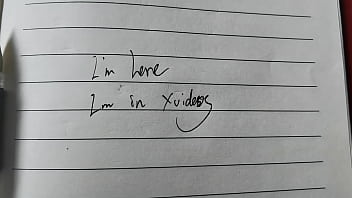 I'm here
I'm in Xvideos